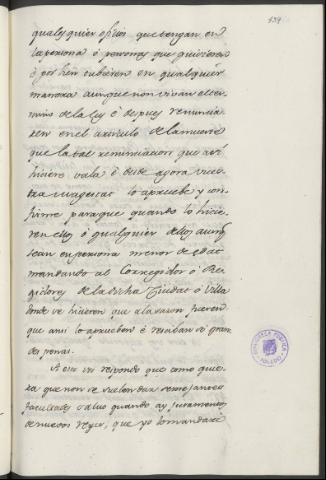 139
qualesquier ofiçios que tengan en
la persona ó personas que quisieren
ó por bien tubieren en qualquier
manera aunque non vivan el ter-
mino de la Ley é despues renuncia-
ren en el articulo de la muerte
que la tal renunciacion que assi
hiciere vala é desde agora vues-
tra magestat lo apruebe y con-
firme para que quando lo hicie-
ren ellos ó qualquier dellos aunq
sean en persona menor de edat
mandando al Corregidor ó Re-
gidores de la dicha Ciudat ó Villa
donde se hicieren que a la razon fueren
que ansi lo aprueben é resciban só gran-
des penas.
A esto vos respondo que como quie-
ra que non se suelen dar semejantes
facultades salvo quando ay juramentos
de nuevos reyes, que yo lo mandaré
BIBLIOTECA PUBLICA
TOLEDO